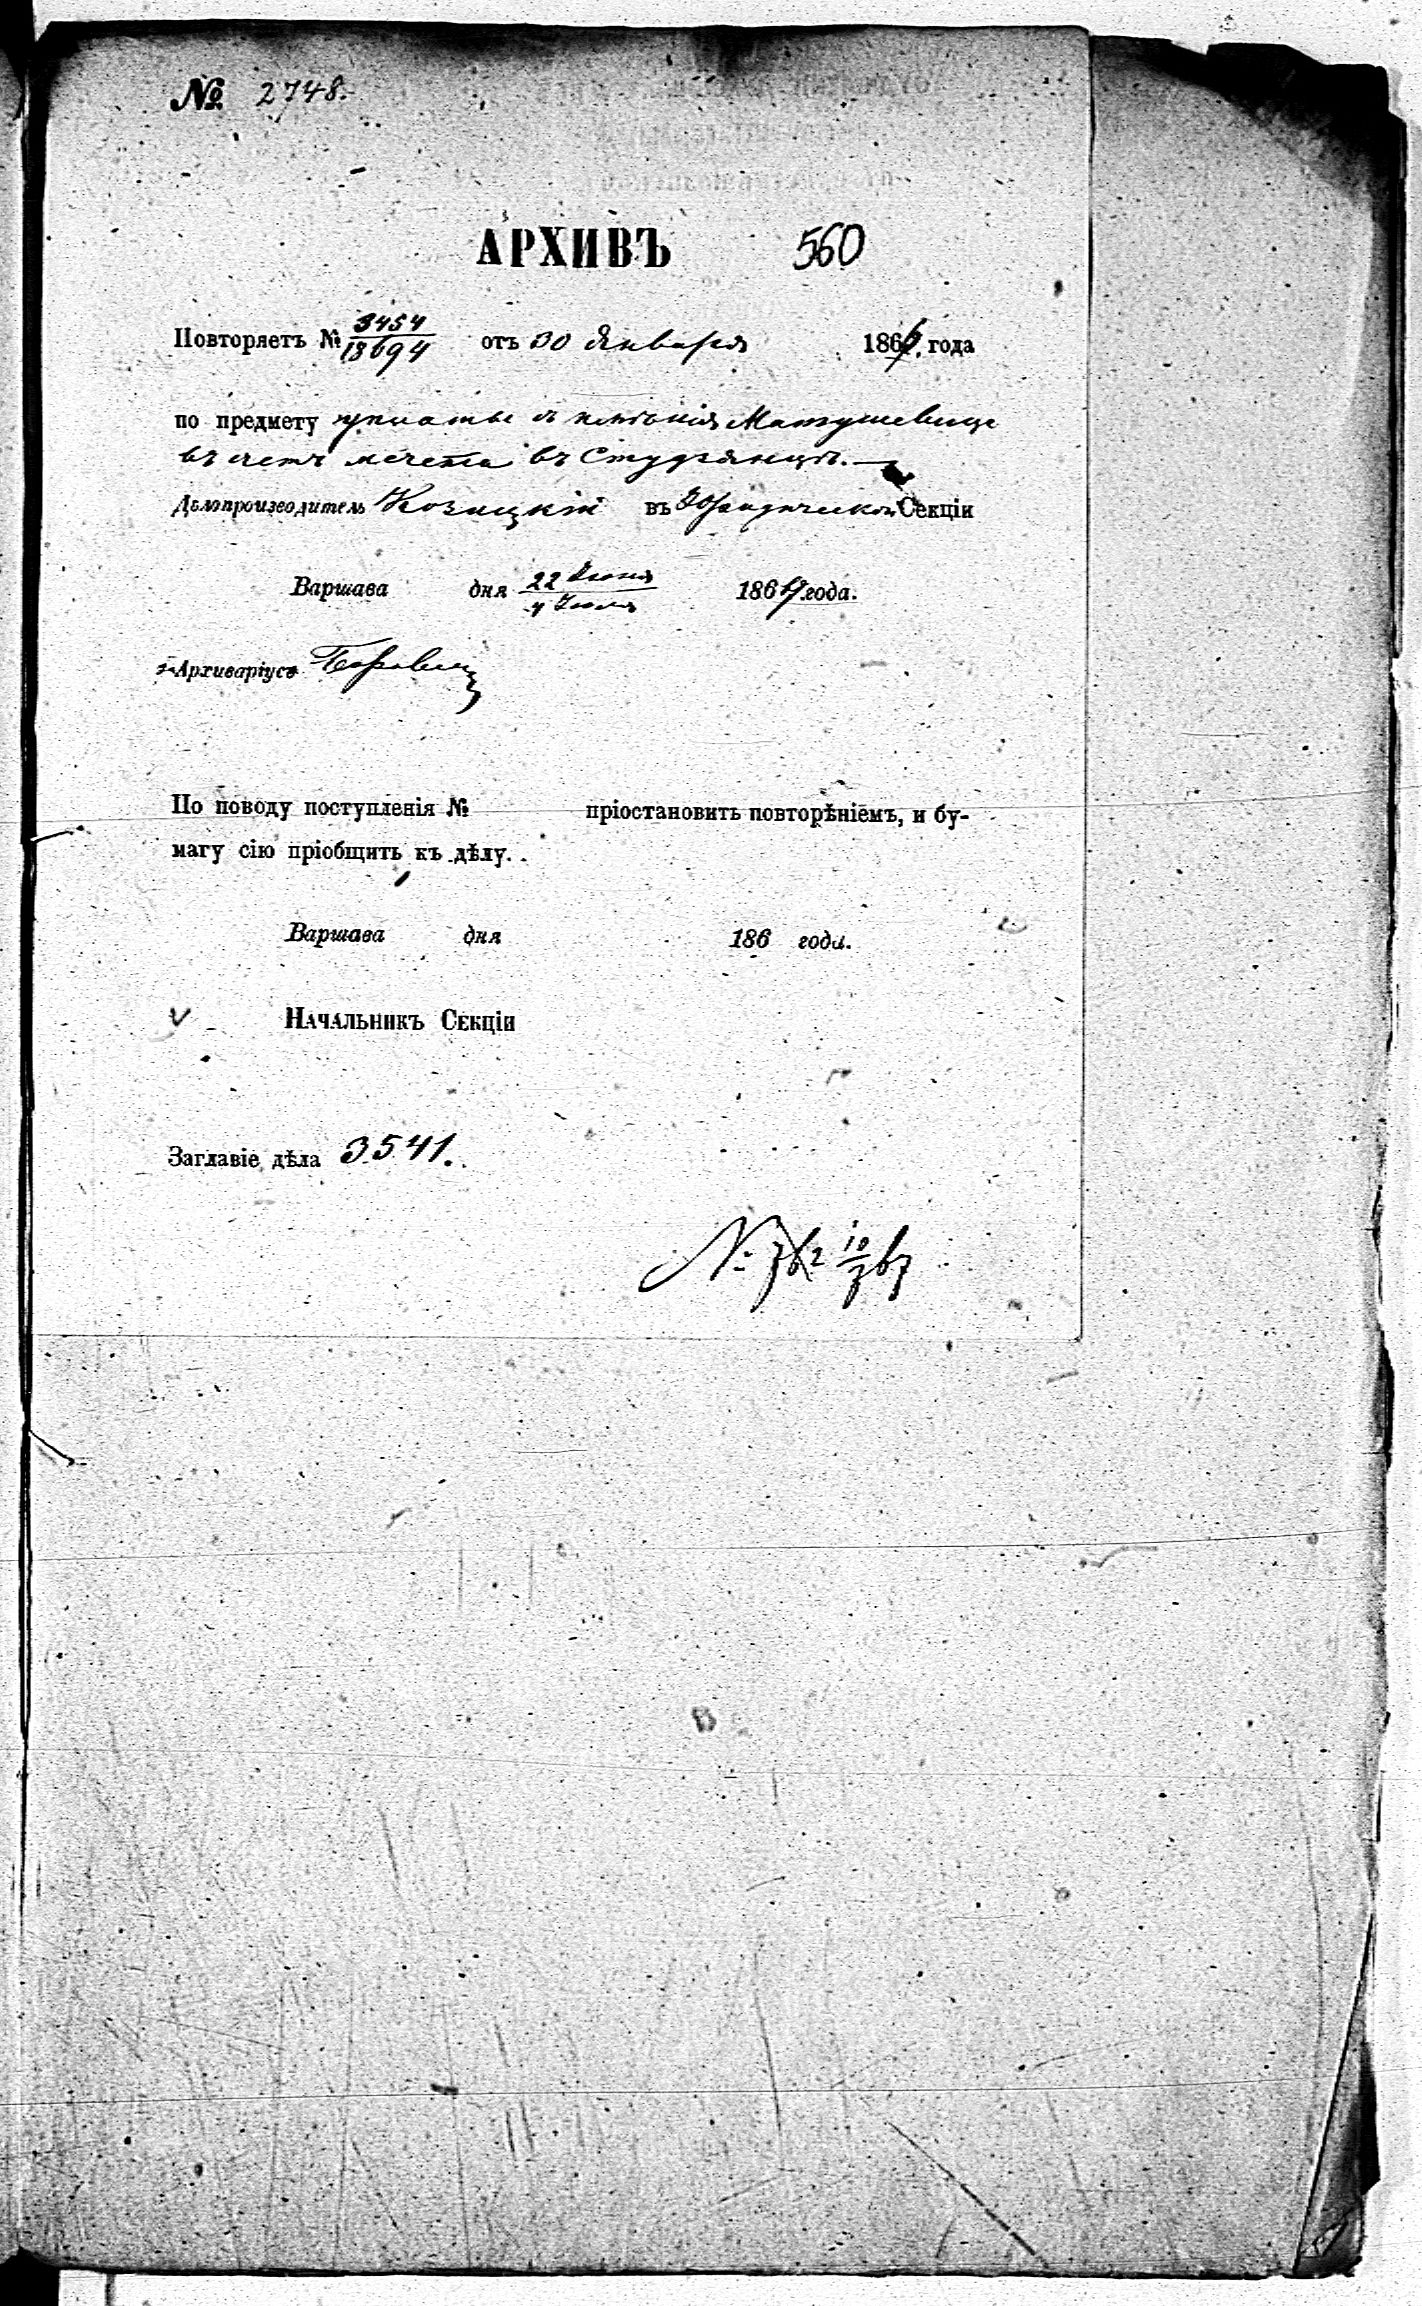 № 2748.
АРХИВЪ 560
Повторяетъ № 3454/13694 отъ 30 Января 1866 года
по предмету уплаты съ имѣнія Матушевица
въ счетъ мечета въ Студзянцѣ.
Дѣлопроизводитель Козицкій въ Юридической Секціи
Варшава дня 22 Іюня/4 Іюля 1867 года.
Архиваріусъ
По поводу поступленія № пріостановить повторѣніемъ, и бу-
магу сію пріобщить къ дѣлу.
Варшава дня 186 года.
Начальникъ Секціи
Заглавіе дѣла 3541.
№ 762 10/7 67